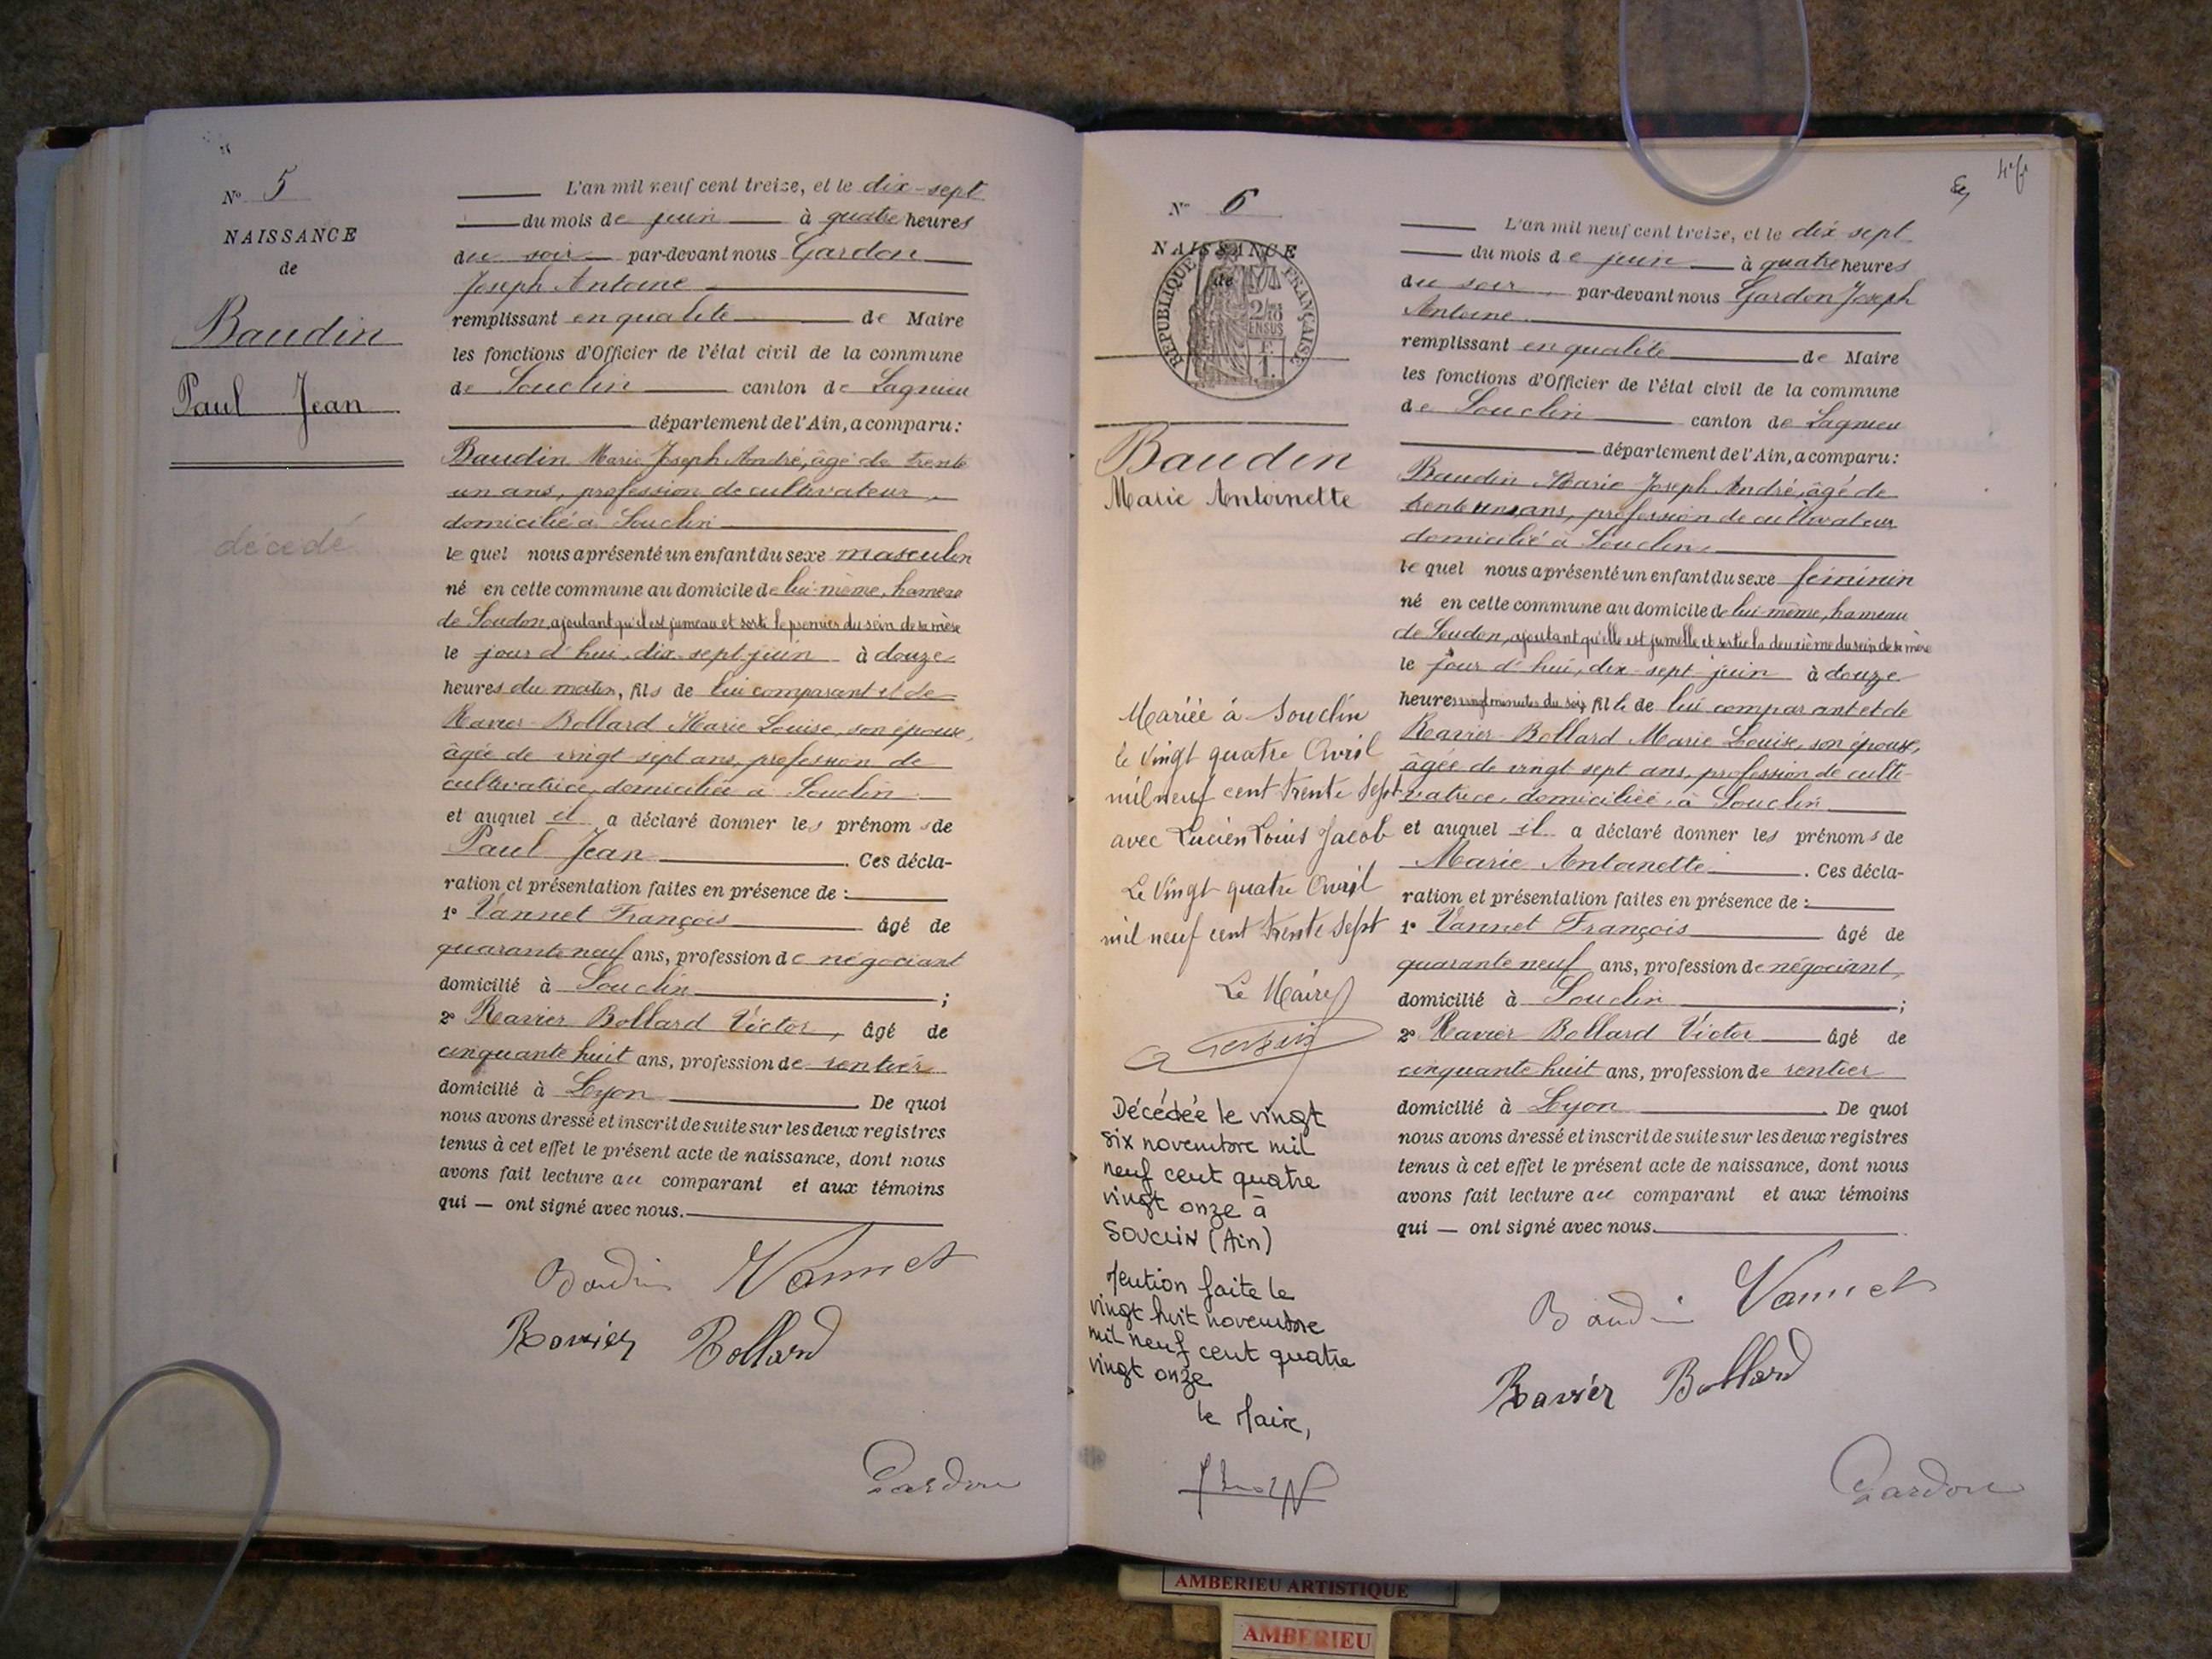 N° 5
NAISSANCE
de
Baudin
Paul Jean
décédé
L'an mil neuf cent treize, et le dix-sept
du mois de juin à quatre heures
du soir par-devant nous Gardon
Joseph Antoine
remplissant en qualité de Maire
les fonctions d'Officier de l'état civil de la commune
de Souclin canton de Lagnieu
département de l'Ain, a comparu:
Baudin Marie Joseph André, âgé de trente
un ans, profession de cultivateur,
domicilié à Souclin
le quel nous a présenté un enfant du sexe masculin
né en cette commune au domicile de lui-même, hameau
de Soudon, ajoutant qu'il est jumeau et sorti le premier du sein de sa mère
le jour d'hui, dix-sept juin à douze
heures du matin, fils de lui comparant et de
Ravier-Bollard Marie Louise, son épouse,
âgée de vingt sept ans, profession de
cultivatrice, domiciliée à Souclin
et auquel il a déclaré donner les prénoms de
Paul Jean. Ces décla-
ration et présentation faites en présence de :
1° Vannet François âgé de
quarante neuf ans, profession de négociant
domicilié à Souclin ;
2° Ravier Bollard Victor, âgé de
cinquante huit ans, profession de rentier
domicilié à Lyon. De quoi
nous avons dressé et inscrit de suite sur les deux registres
tenus à cet effet le présent acte de naissance, dont nous
avons fait lecture au comparant et aux témoins
qui — ont signé avec nous.
Baudin Vannet
Ravier Bollard
Gardon
N° 6
NAISSANCE
de
RÉPUBLIQUE FRANÇAISE
2/10
EN SUS
Baudin
Marie Antoinette
Mariée à Souclin
le vingt quatre Avril
mil neuf cent trente sept
avec Lucien Louis Jacob
Le vingt quatre Avril
mil neuf cent trente sept
Le Maire
Décédée le vingt
six novembre mil
neuf cent quatre
vingt onze à
SOUCLIN (Ain)
Mention faite le
vingt huit novembre
mil neuf cent quatre
vingt onze
le Maire,
L'an mil neuf cent treize, et le dix-sept
du mois de juin à quatre heures
du soir par-devant nous Gardon Joseph
Antoine
remplissant en qualité de Maire
les fonctions d'Officier de l'état civil de la commune
de Souclin canton de Lagnieu
département de l'Ain, a comparu:
Baudin Marie Joseph André, âgé de
trente un ans, profession de cultivateur
domicilié à Souclin,
le quel nous a présenté un enfant du sexe féminin
né en cette commune au domicile de lui-même, hameau
de Soudon, ajoutant qu'elle est jumelle et sortie la deuxième du sein de sa mère
le jour d'hui, dix-sept juin à douze
heures vingt minutes du soir, fille de lui comparant et de
Ravier-Bollard Marie Louise, son épouse,
âgée de vingt sept ans, profession de culti-
vatrice, domiciliée à Souclin
et auquel il a déclaré donner les prénoms de
Marie Antoinette. Ces décla-
ration et présentation faites en présence de :
1° Vannet François âgé de
quarante neuf ans, profession de négociant,
domicilié à Souclin ;
2° Ravier Bollard Victor âgé de
cinquante huit ans, profession de rentier
domicilié à Lyon. De quoi
nous avons dressé et inscrit de suite sur les deux registres
tenus à cet effet le présent acte de naissance, dont nous
avons fait lecture au comparant et aux témoins
qui — ont signé avec nous.
Baudin Vannet
Ravier Bollard
Gardon
AMBERIEU ARTISTIQUE
AMBERIEU